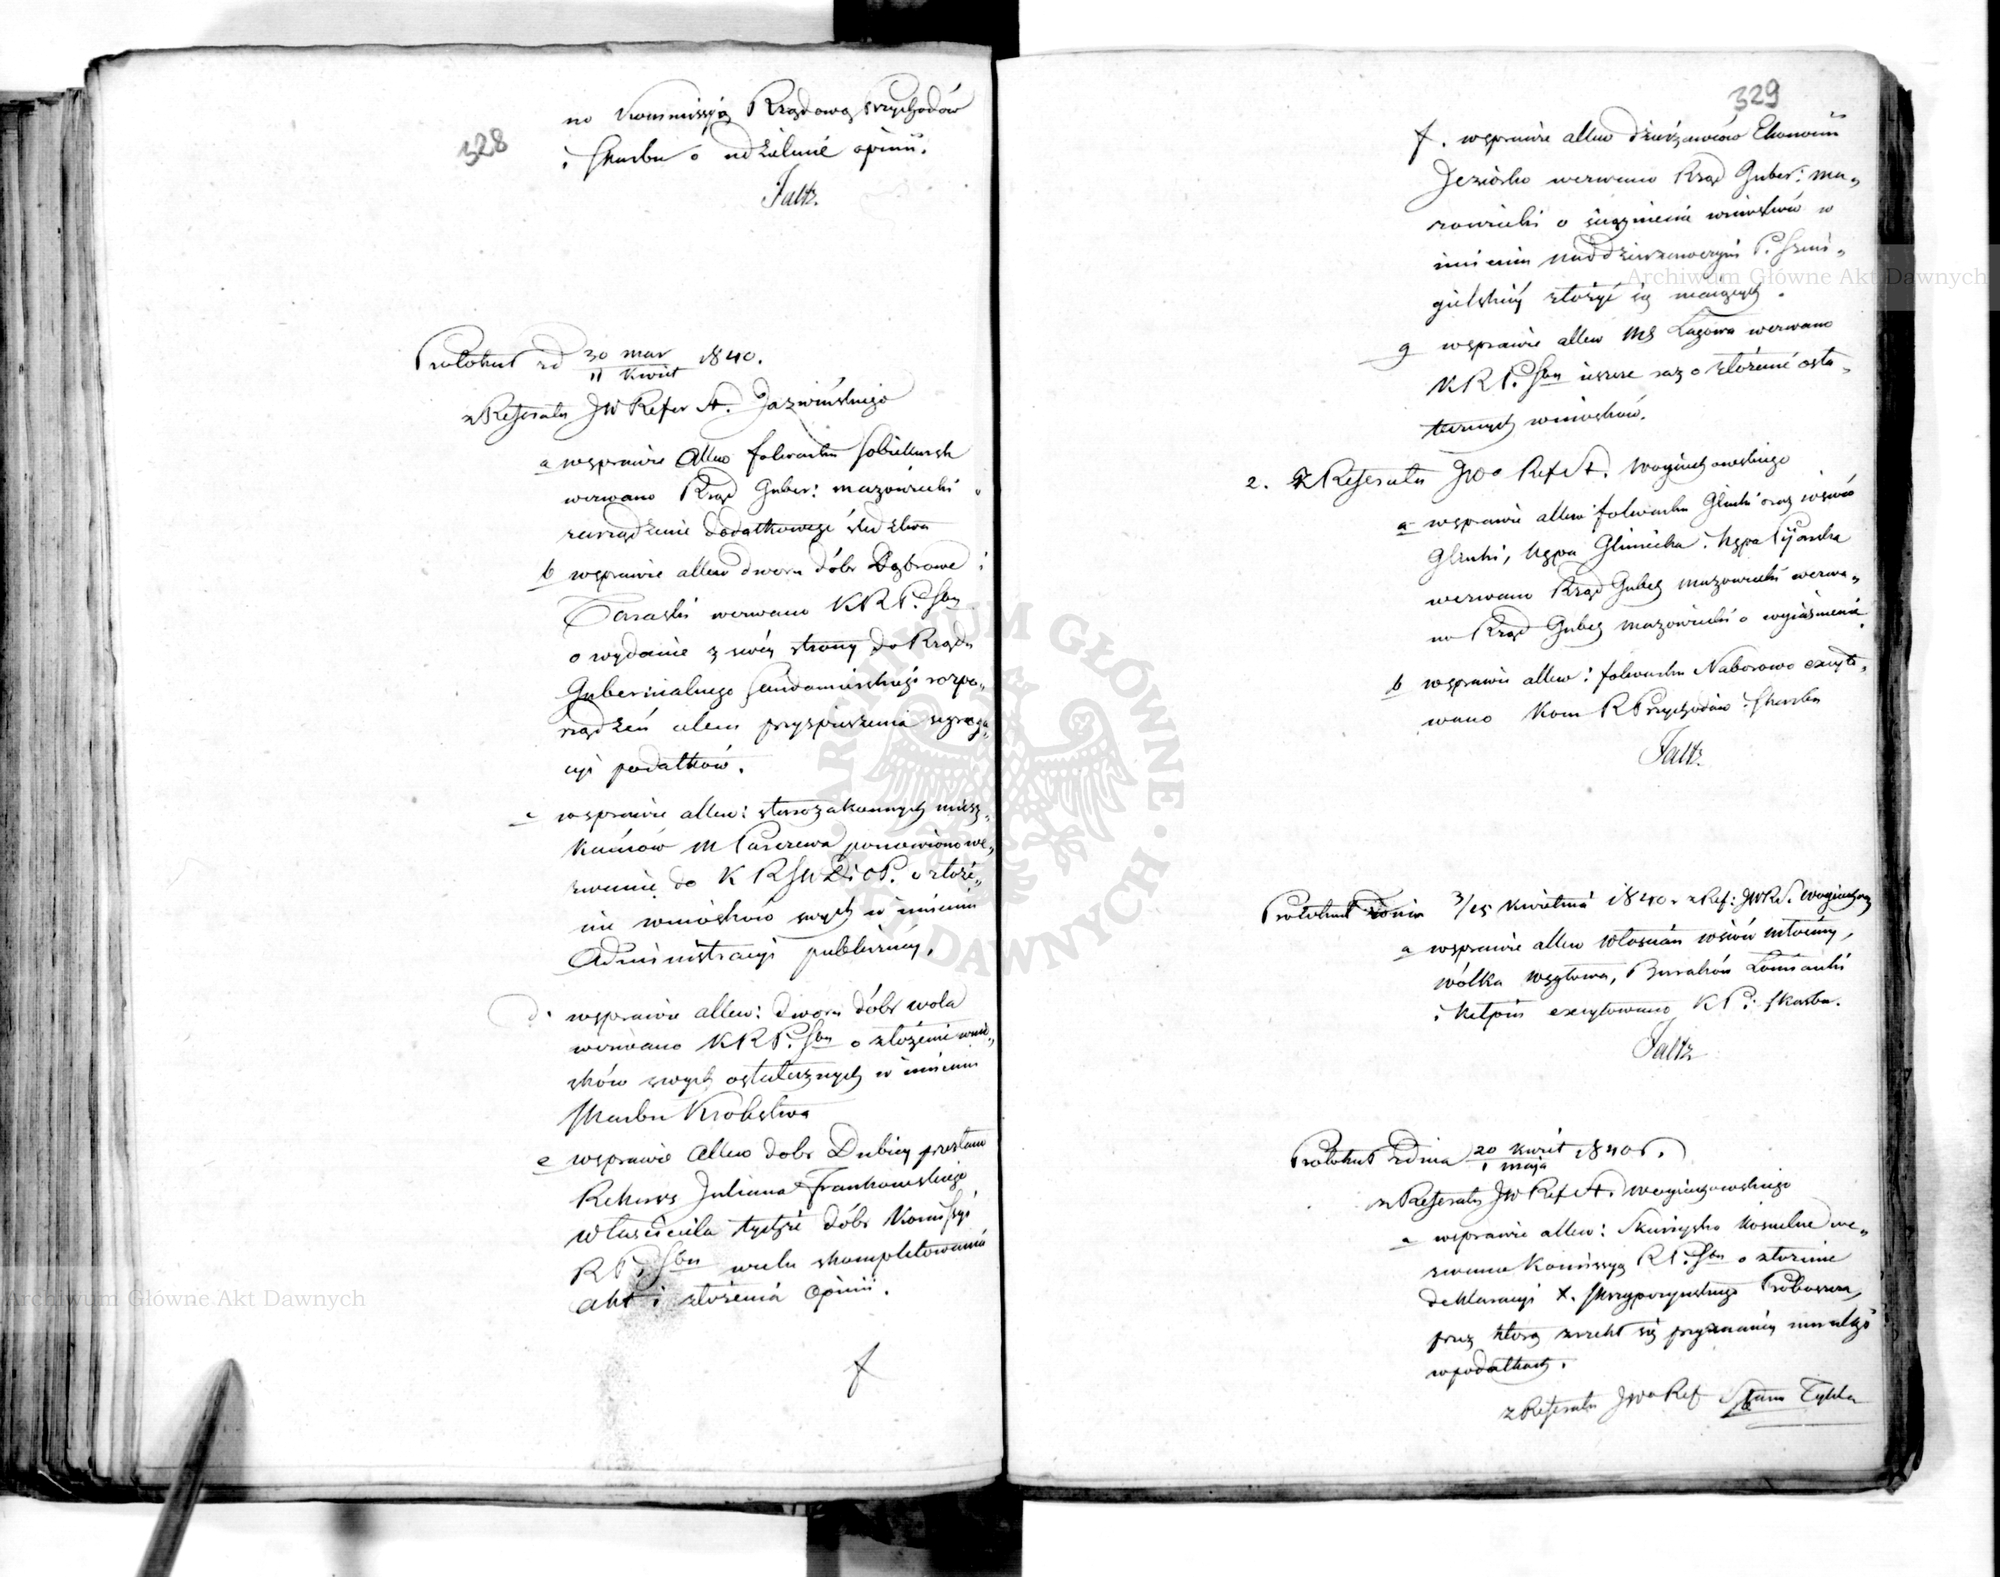 328
no Kommissyą Rządową Przychodów
i Skarbu o udzielenie opinii.
Faltz.
Protokuł zd 30 mar / 11 kwiet 1840.
z Referatu JW Refer St. Jazwińskiego
a wsprawie allew folwarku Sobiekursk
wezwano Rząd Guber: mazowiecki o
zarządzenie dodatkowego śledztwa
b wsprawie allew dworu dóbr Dąbrowe i
Taraski wezwano KRP. Sbu
o wydanie z swéj strony do Rządu
Gubernialnego Sandomirskiego rozpo„
rządzeń celem przyspieszenia segrega„
cyi podatków.
c wsprawie allew: starozakonnych miesz„
kańców M Parczewa ponowiono we„
zwanie do K R S W D i O P. o złoże„
nie wniosków swych w imieniu
Administracyi publicznéj.
d. wsprawie allew: dworu dóbr Wola
wezwano KRP. Sbu o złożenie wnio„
sków swych ostatecznych w imieniu
Skarbu Królestwa
e wsprawie allew dobr Dubicy przesłano
Rekurs Juliana Frankowskiego
właściciela tychże dóbr Komissyi
R P. Sbu wcelu skompletowania
akt i złożenia opinii.
f
329
f. wsprawie allew dzierżawców Ekonomii
Jeziorko wezwano Rząd Guber: ma„
zowiecki o ściągnienie wniosków w
imieniu naddzierzawczyni P.
złożyć się mających.
g wsprawie allew MS Łagowa wezwano
KRP. Sbu ieszcze raz o złożenie osta„
tecznych wniosków.
2. z Referatu JWo Ref St. Woyciechowskiego
a wsprawie allew folwarku Glinki oraz wsiów
Glinki, Kępa Gliniecka i Kępa
wezwano Rząd Guber mazowiecki wezwa„
no Rząd Guber mazowiecki o wyiaśnienie.
b wsprawie allew: folwarku Naborowo excyto„
wano Kom R Przychodów i Skarbu
Faltz.
Protokuł zdnia 3/15 Kwietnia 1840 r z Ref: JWR S. Woyciechow
a wsprawie allew włościan wsiów Młociny,
Wólka Węglowa, Burakow Łomianki
i Kiełpin excytowano K P i Skarbu.
Faltz
Protokuł zdnia 20 kwiet / 1 maja 1840 r.
z Referatu JW Ref St. Woyciechowskiego
a wsprawie allew: Skurzysko kościelne we„
zwano Komissyą RP. Sbu o złożenie
deklaracyi X. Skrzypczyńskiego Proboszcza,
przez którą zrzekł się przyznanéj mu ulgi
wpodatkach.
z Referatu JWo Ref Stanu Tykla